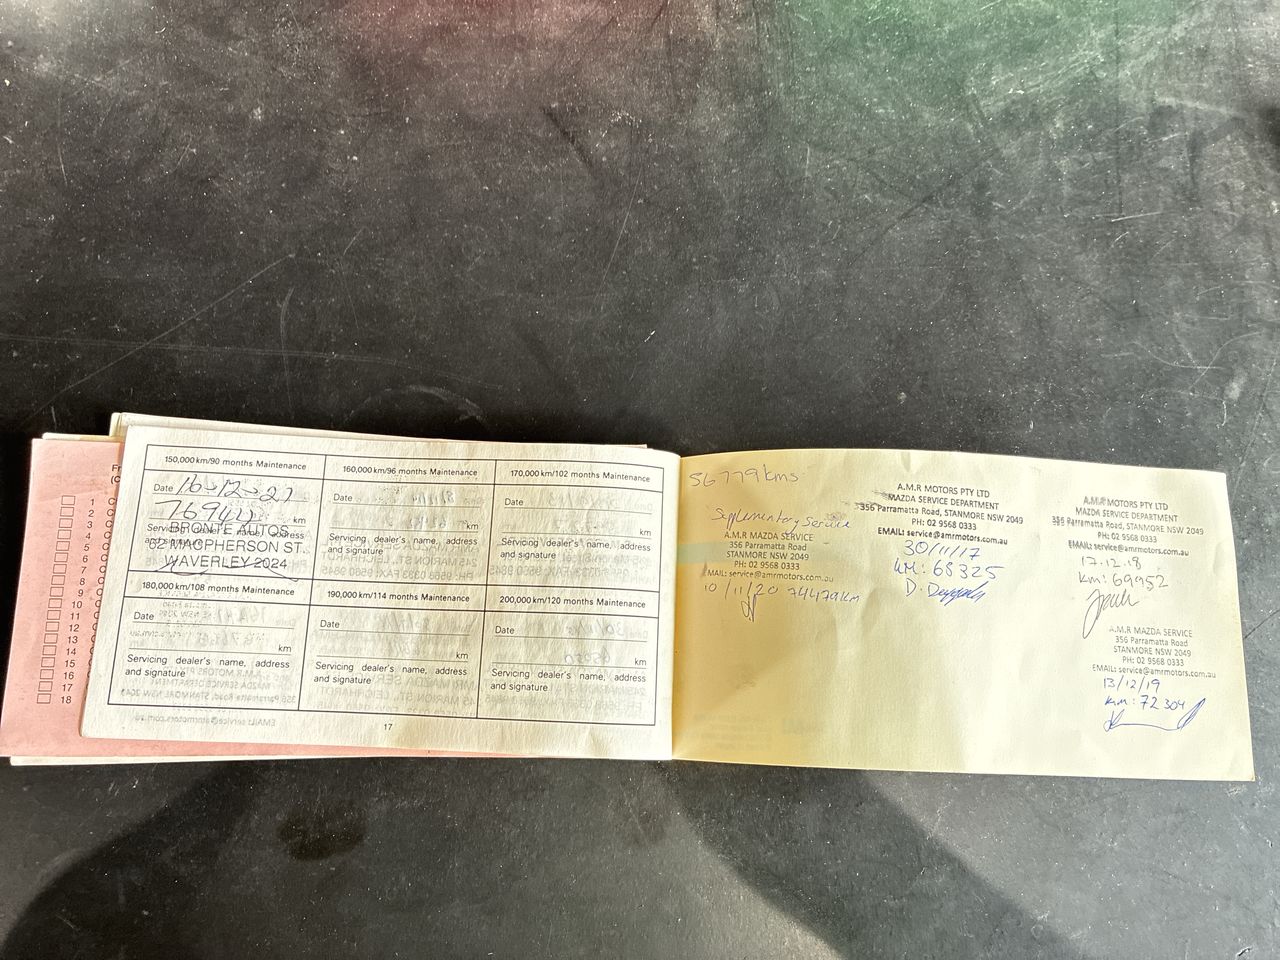 Fr
(C
1 C
2 C
3 C
4 C
5 C
6 C
7 C
8 C
9 C
10 C
11 C
12 C
13 C
14 C
15 C
16 C
17 C
18
150,000 km/90 months Maintenance
Date 16-12-21
76940 km
Servicing dealer's name, address
and signature
BRONTE AUTOS
62 MACPHERSON ST.
WAVERLEY 2024
160,000 km/96 months Maintenance
Date
km
Servicing dealer's name, address
and signature
170,000 km/102 months Maintenance
Date
km
Servicing dealer's name, address
and signature
180,000 km/108 months Maintenance
Date
km
Servicing dealer's name, address
and signature
190,000 km/114 months Maintenance
Date
km
Servicing dealer's name, address
and signature
200,000 km/120 months Maintenance
Date
km
Servicing dealer's name, address
and signature
17
56779kms
Supplementary Service
A.M.R MAZDA SERVICE
356 Parramatta Road
STANMORE NSW 2049
PH: 02 9568 0333
EMAIL: service@amrmotors.com.au
10/11/20 74479KM
A.M.R MOTORS PTY LTD
MAZDA SERVICE DEPARTMENT
356 Parramatta Road, STANMORE NSW 2049
PH: 02 9568 0333
EMAIL: service@amrmotors.com.au
30/11/17
KM: 68325
A.M.R MOTORS PTY LTD
MAZDA SERVICE DEPARTMENT
356 Parramatta Road, STANMORE NSW 2049
PH: 02 9568 0333
EMAIL: service@amrmotors.com.au
17.12.18
Km: 69952
A.M.R MAZDA SERVICE
356 Parramatta Road
STANMORE NSW 2049
PH: 02 9568 0333
EMAIL: service@amrmotors.com.au
13/12/19
Km: 72304